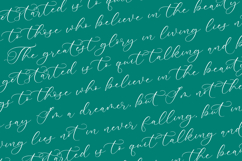 who believe in the beauty
The greatest glory in living lies n
get started is to quit talking and b
gs to those who believe in the beaut
say I'm a dreamer but I'm not th
ving lies not in never falling but
started is to quit talking and